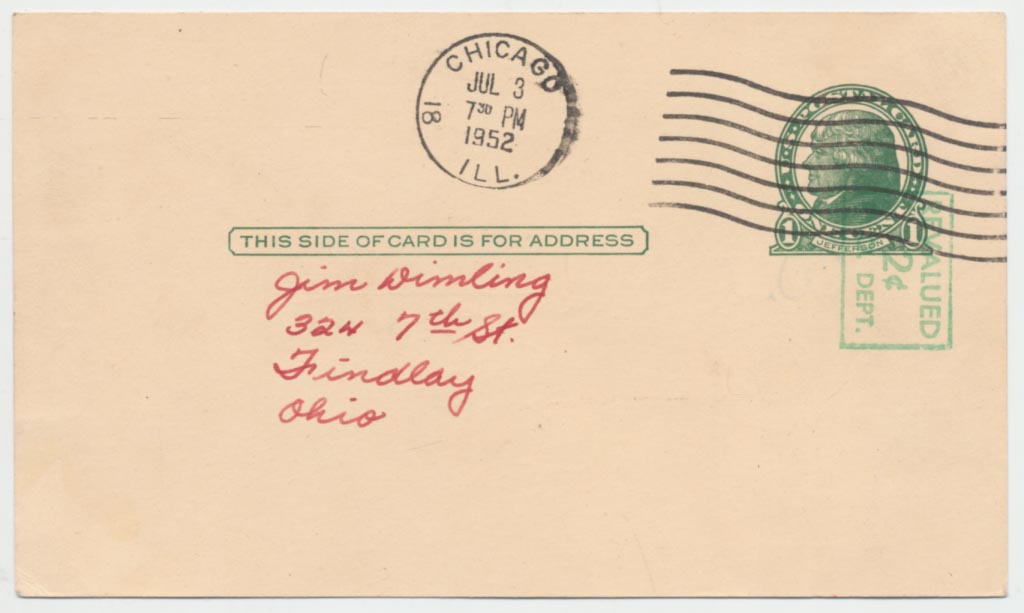 CHICAGO
JUL 3
7 30 PM
1952
ILL.
18
U.S. POSTAL CARD
1 1
JEFFERSON
REVALUED
2¢
DEPT.
THIS SIDE OF CARD IS FOR ADDRESS
Jim Dimling
324 7th St.
Findlay
Ohio